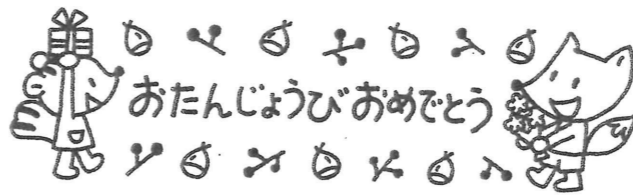 おたんじょうびおめでとう